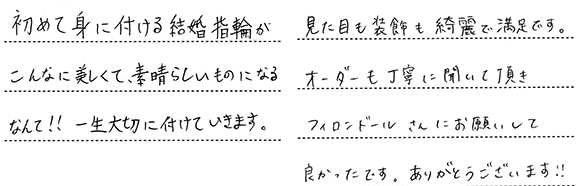 初めて身に付ける結婚指輪が
こんなに美しくて、素晴らしいものになる
なんて!! 一生大切に付けていきます。
見た目も装飾も綺麗で満足です。
オーダーも丁寧に聞いて頂き
フィロンドールさんにお願いして
良かったです。ありがとうございます!!